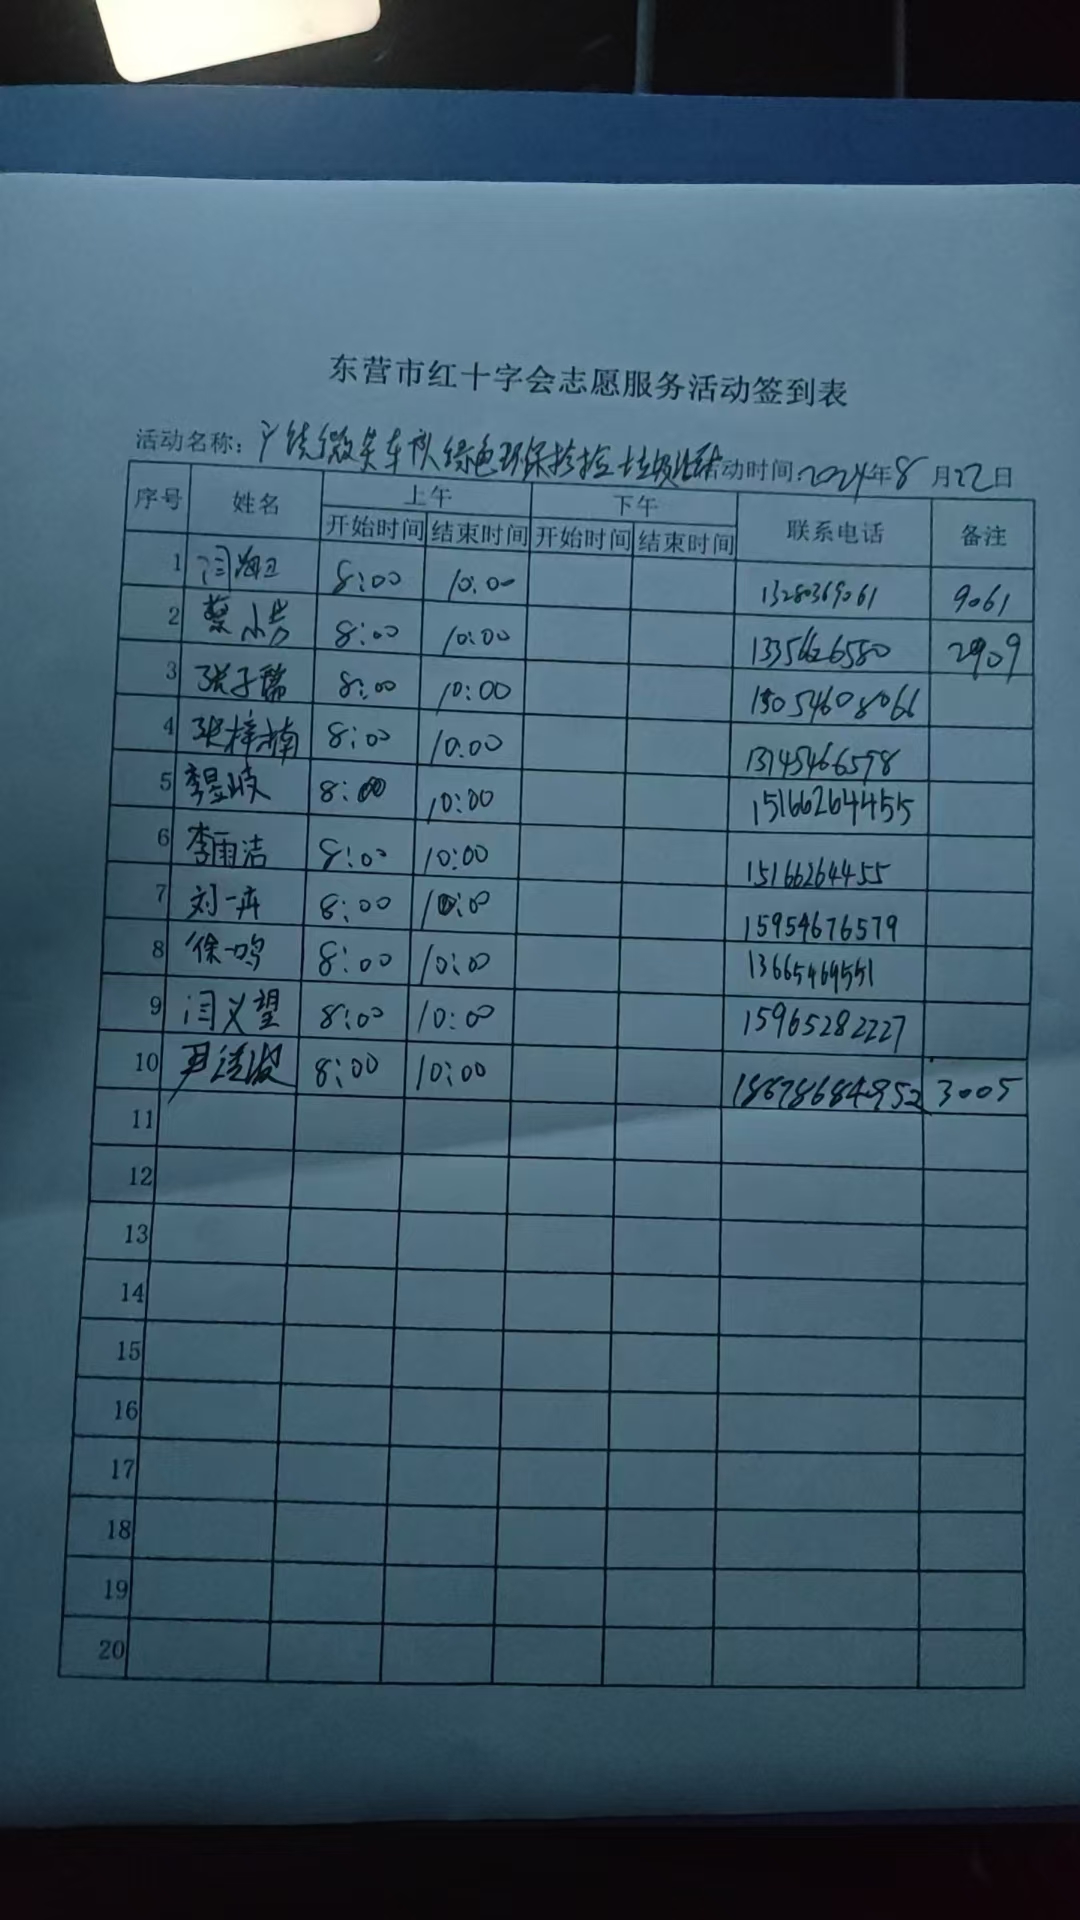 东营市红十字会志愿服务活动签到表
活动名称：广饶微笑车队绿色环保捡捡垃圾活动 活动时间：2024年8月22日
序号 姓名 上午 下午 联系电话 备注
开始时间 结束时间 开始时间 结束时间
1 闫海卫 8:00 10:00 13280369061 9061
2 蔡小芳 8:00 10:00 1335626580 2909
3 张子 8:00 10:00 15054608066
4 张梓楠 8:00 10:00 13745466578
5 李昱岐 8:00 10:00 15166264455
6 李雨洁 8:00 10:00 15166264455
7 刘一卉 8:00 10:00 15954676579
8 徐一鸣 8:00 10:00 13665469551
9 闫义望 8:00 10:00 15965282227
10 尹 8:00 10:00 18678684952 3005
11
12
13
14
15
16
17
18
19
20